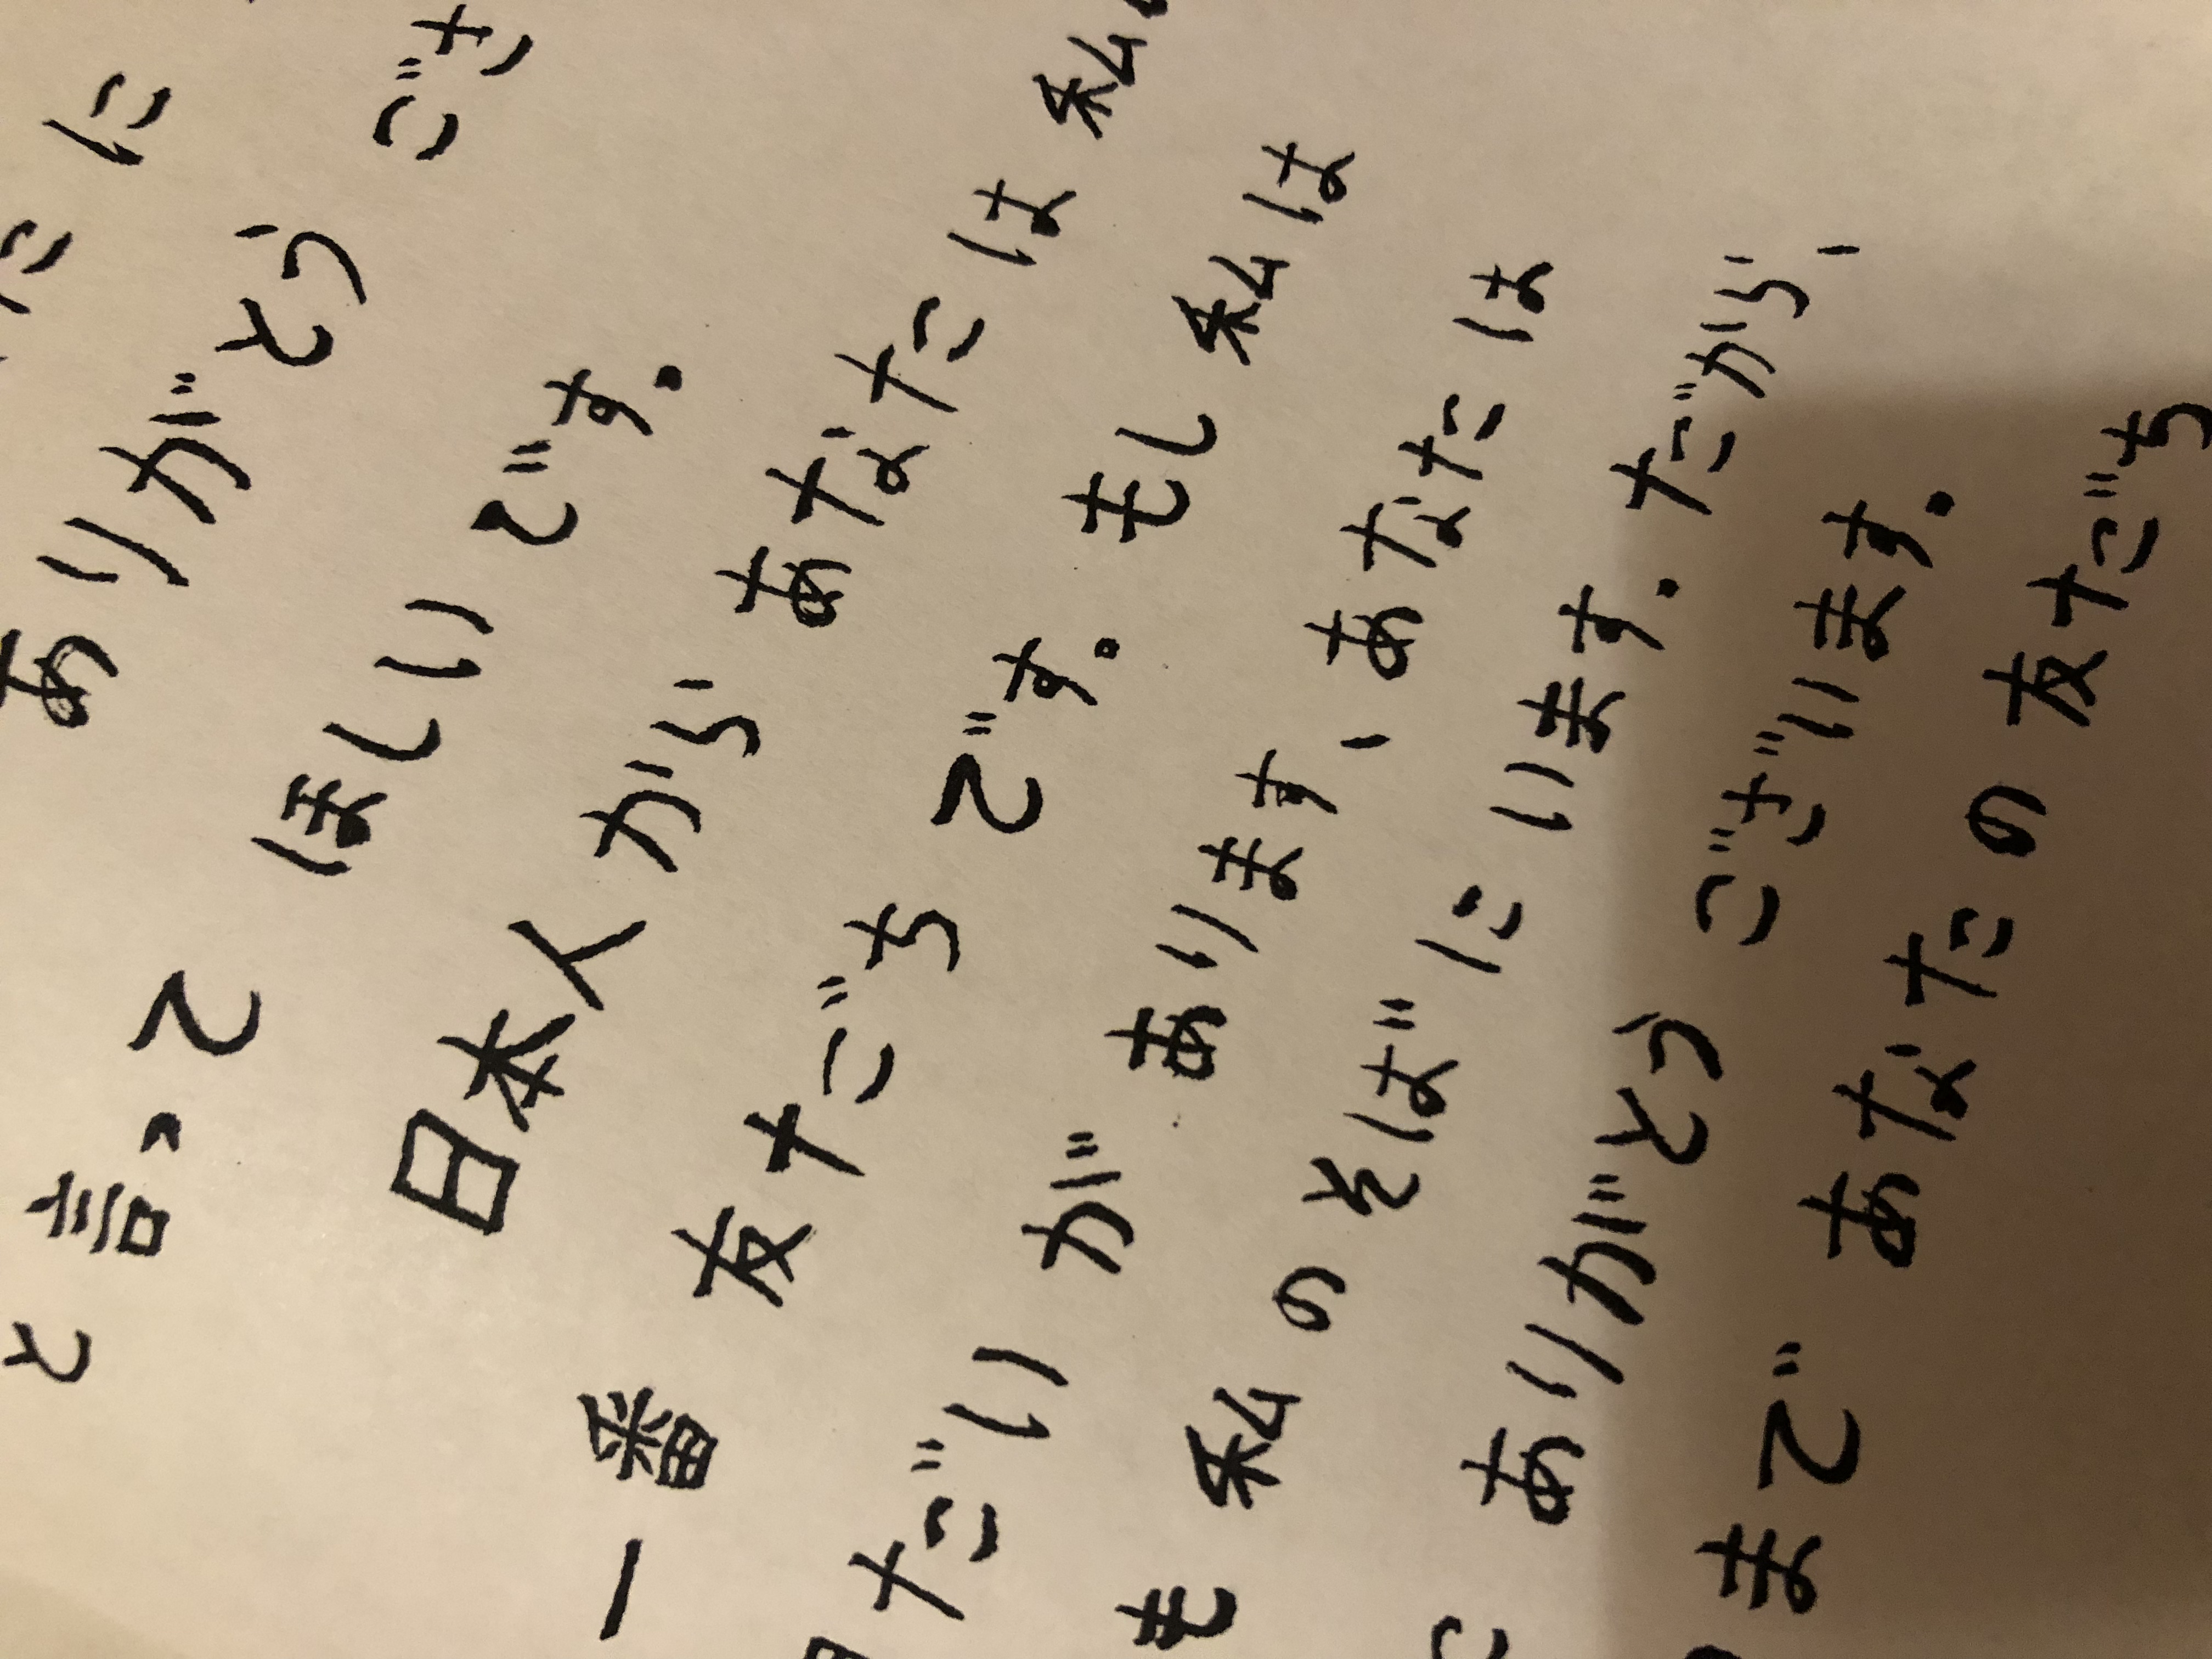 に
ありがとう ござ
と言って ほしいです.
日本人から あなたは 私
一番 友だち です. もし 私は
だいが あります、 あなたは
も 私の そばに います. だから、
ありがとう ございます.
まで あなたの 友だち